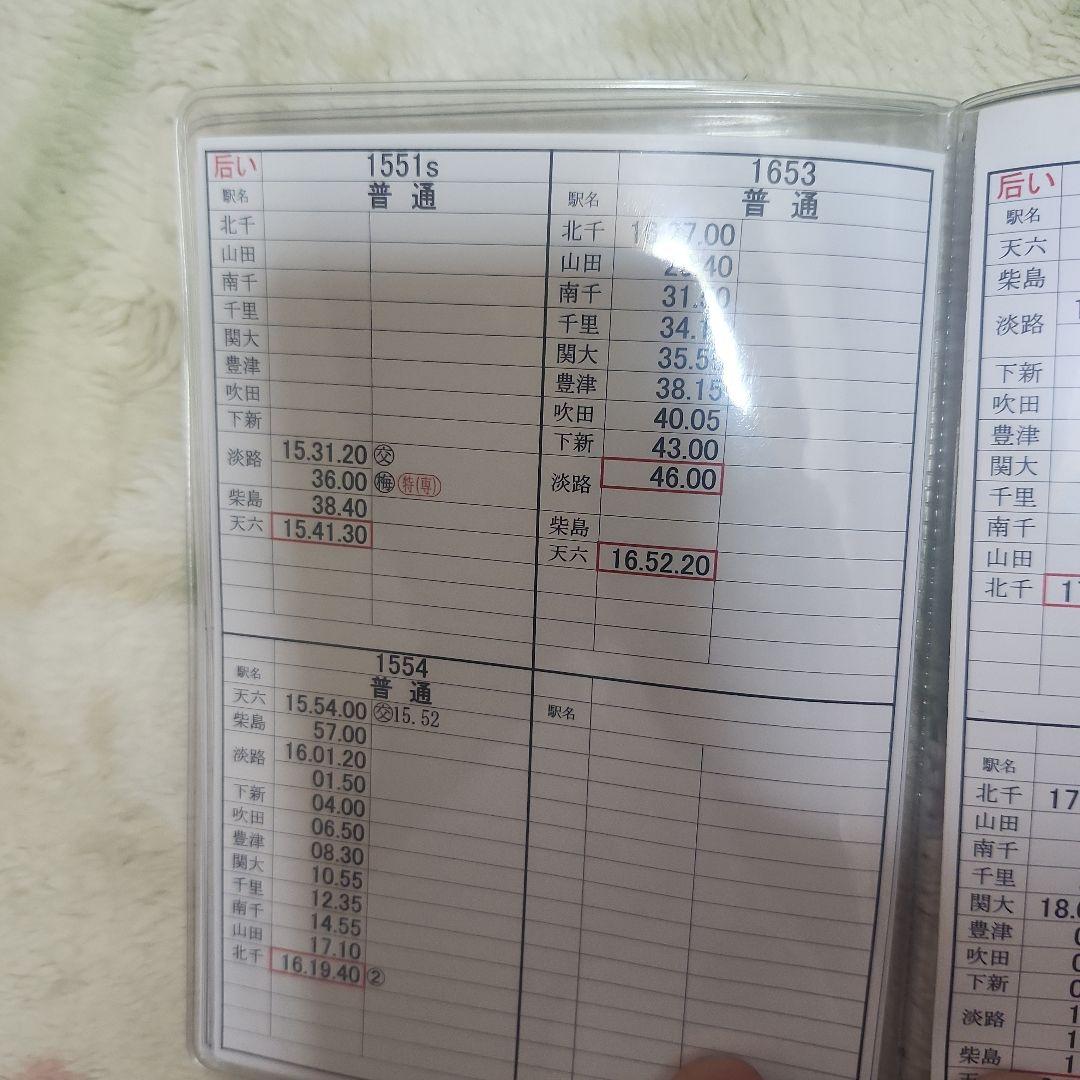 后い 1551s
駅名 普通
北千
山田
南千
千里
関大
豊津
吹田
下新
淡路 15.31.20 交
36.00 梅 特(専)
柴島 38.40
天六 15.41.30
1653
駅名 普通
北千 27.00
山田 40
南千 31.
千里 34.
関大 35.5
豊津 38.15
吹田 40.05
下新 43.00
淡路 46.00
柴島
天六 16.52.20
1554
駅名 普通
天六 15.54.00 交15.52
柴島 57.00
淡路 16.01.20
01.50
下新 04.00
吹田 06.50
豊津 08.30
関大 10.55
千里 12.35
南千 14.55
山田 17.10
北千 16.19.40 ②
駅名
后い
駅名
天六
柴島
淡路
下新
吹田
豊津
関大
千里
南千
山田
北千
駅名
北千 17
山田
南千
千里
関大 18.
豊津
吹田
下新
淡路
柴島